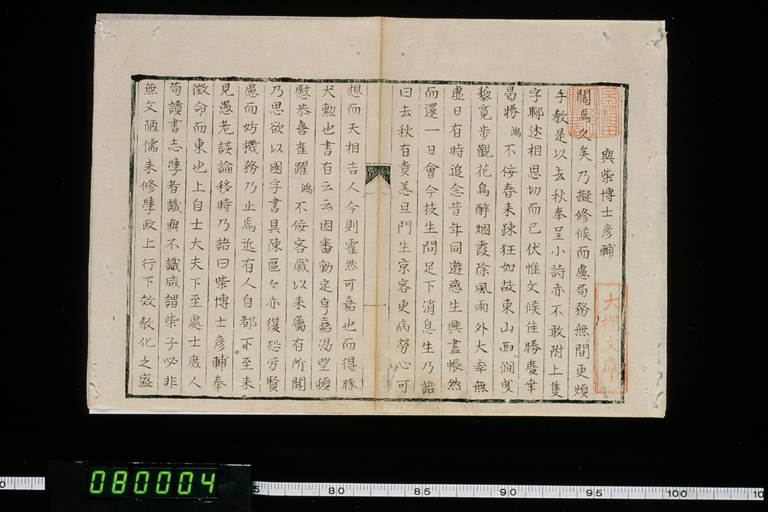 與柴博士彦輔
闊焉久矣乃擬修候而慮局務無間更煩
手教是以去秋奉呈小詩亦不敢附上隻
字聊述相思切而已伏惟文候佳勝慶幸
曷勝鴻不佞春來踈狂如故東山西澗曳
藜寛步觀花鳥醉烟霞除風雨外大率無
虚日有時追念昔年同遊感生興盡悵然
而還一日會令技生問足下消息生乃語
曰去秋有賁善旦門生京客更病勞心可
想而天相吉人今則霍然可嘉也而得豚
犬勲也書有云云因審動定亨嘉渇望頓
慰恭善雀躍鴻不佞客歳以来屬有所聞
乃思欲以國字書具陳區々亦復恐労賢
慮而妨機務乃止焉近有人自都下至来
見愚老談論移時乃語曰柴博士彦輔奉
徴命而東也上自士大夫下至處士庶人
苟讀書志學者識與不識咸謂柴子必非
無文陋儒来修學政上行下效教化之盛
大槻文庫
080004
80
85
90
95
100